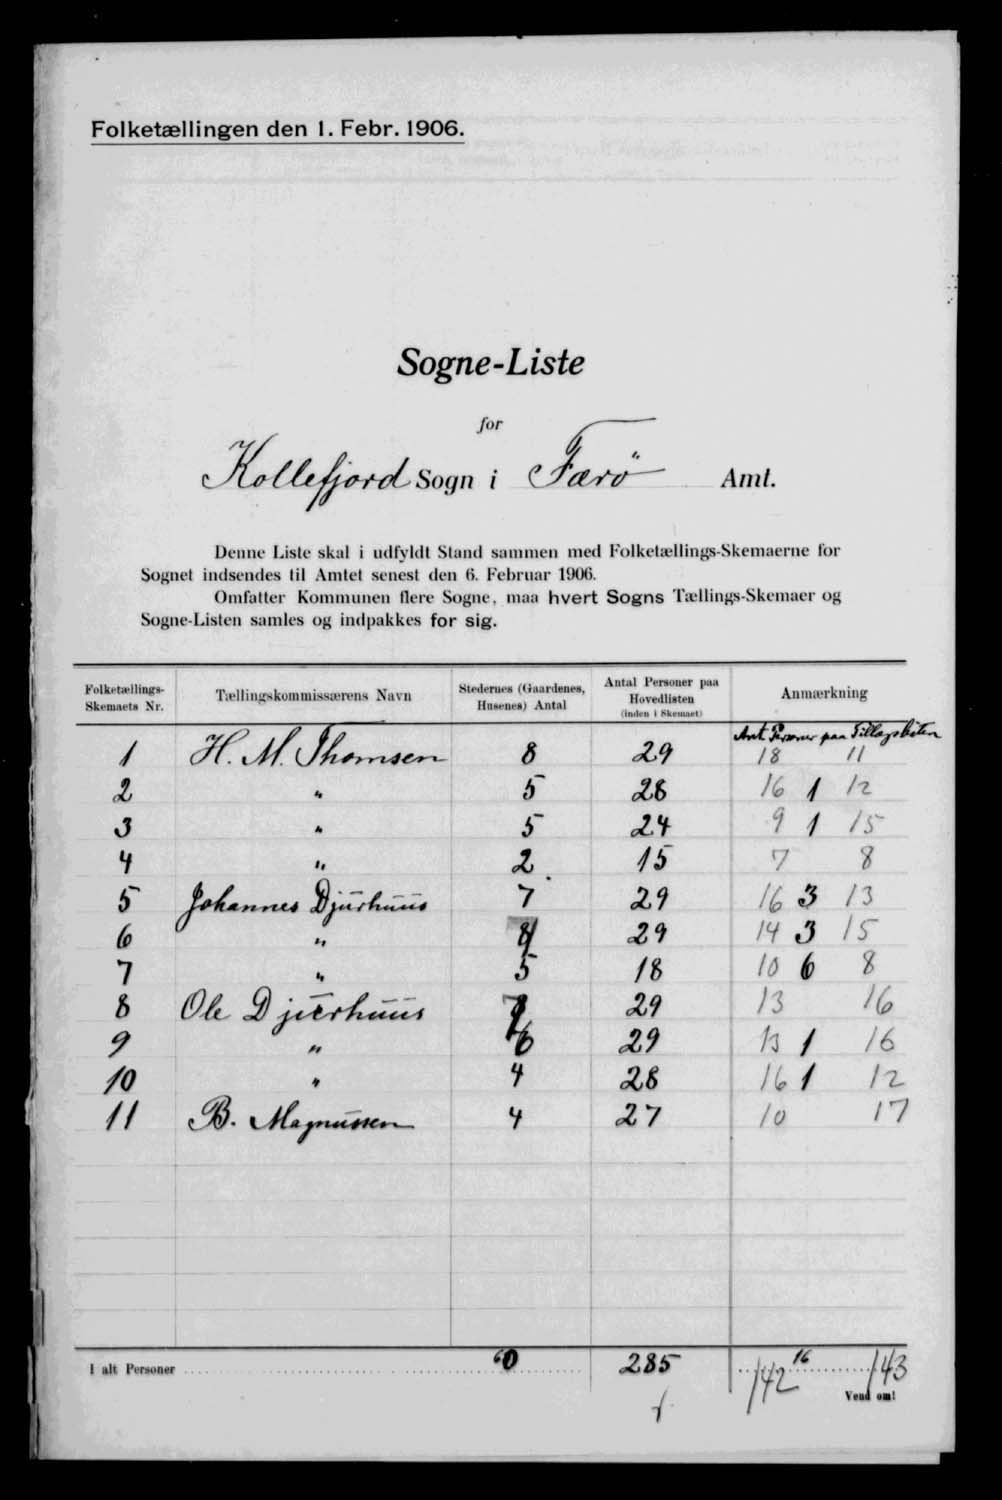 Folketællingen den 1. Febr. 1906.
Sogne-Liste
for
Kollefjord Sogn i Færö Amt.
Denne Liste skal i udfyldt Stand sammen med Folketællings-Skemaerne for
Sognet indsendes til Amtet senest den 6. Februar 1906.
Omfatter Kommunen flere Sogne, maa hvert Sogns Tællings-Skemaer og
Sogne-Listen samles og indpakkes for sig.
Folketællings-Skemaets Nr. Tællingskommissærens Navn Stedernes (Gaardenes, Husenes) Antal Antal Personer paa Hovedlisten (inden i Skemaet) Anmærkning
Ant. Personer paa Tillægslisten
1 H. M. Thomsen 8 29 18 11
2 " 5 28 16 1 12
3 " 5 24 9 1 15
4 " 2 15 7 8
5 Johannes Djurhuus 7 29 16 3 13
6 " 29 14 3 15
7 " 5 18 10 6 8
8 Ole Djurhuus 29 13 16
9 " 6 29 13 1 16
10 " 4 28 16 1 12
11 B. Magnussen 4 27 10 17
I alt Personer 60 285 142 16 143
Vend om!